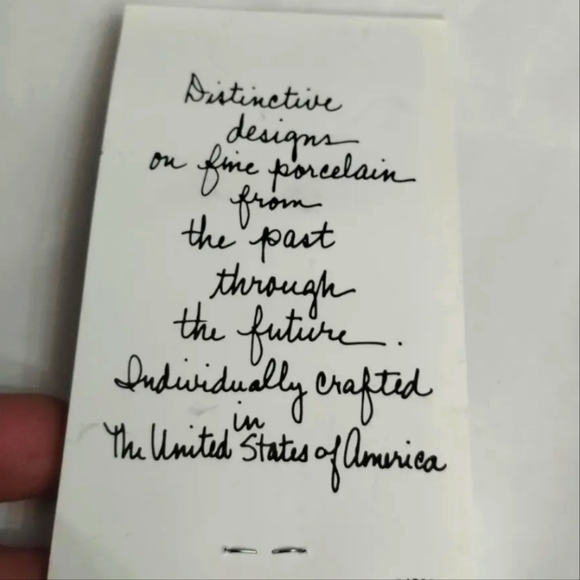 Distinctive
designs
on fine porcelain
from
the past
through
the future.
Individually crafted
in
The United States of America